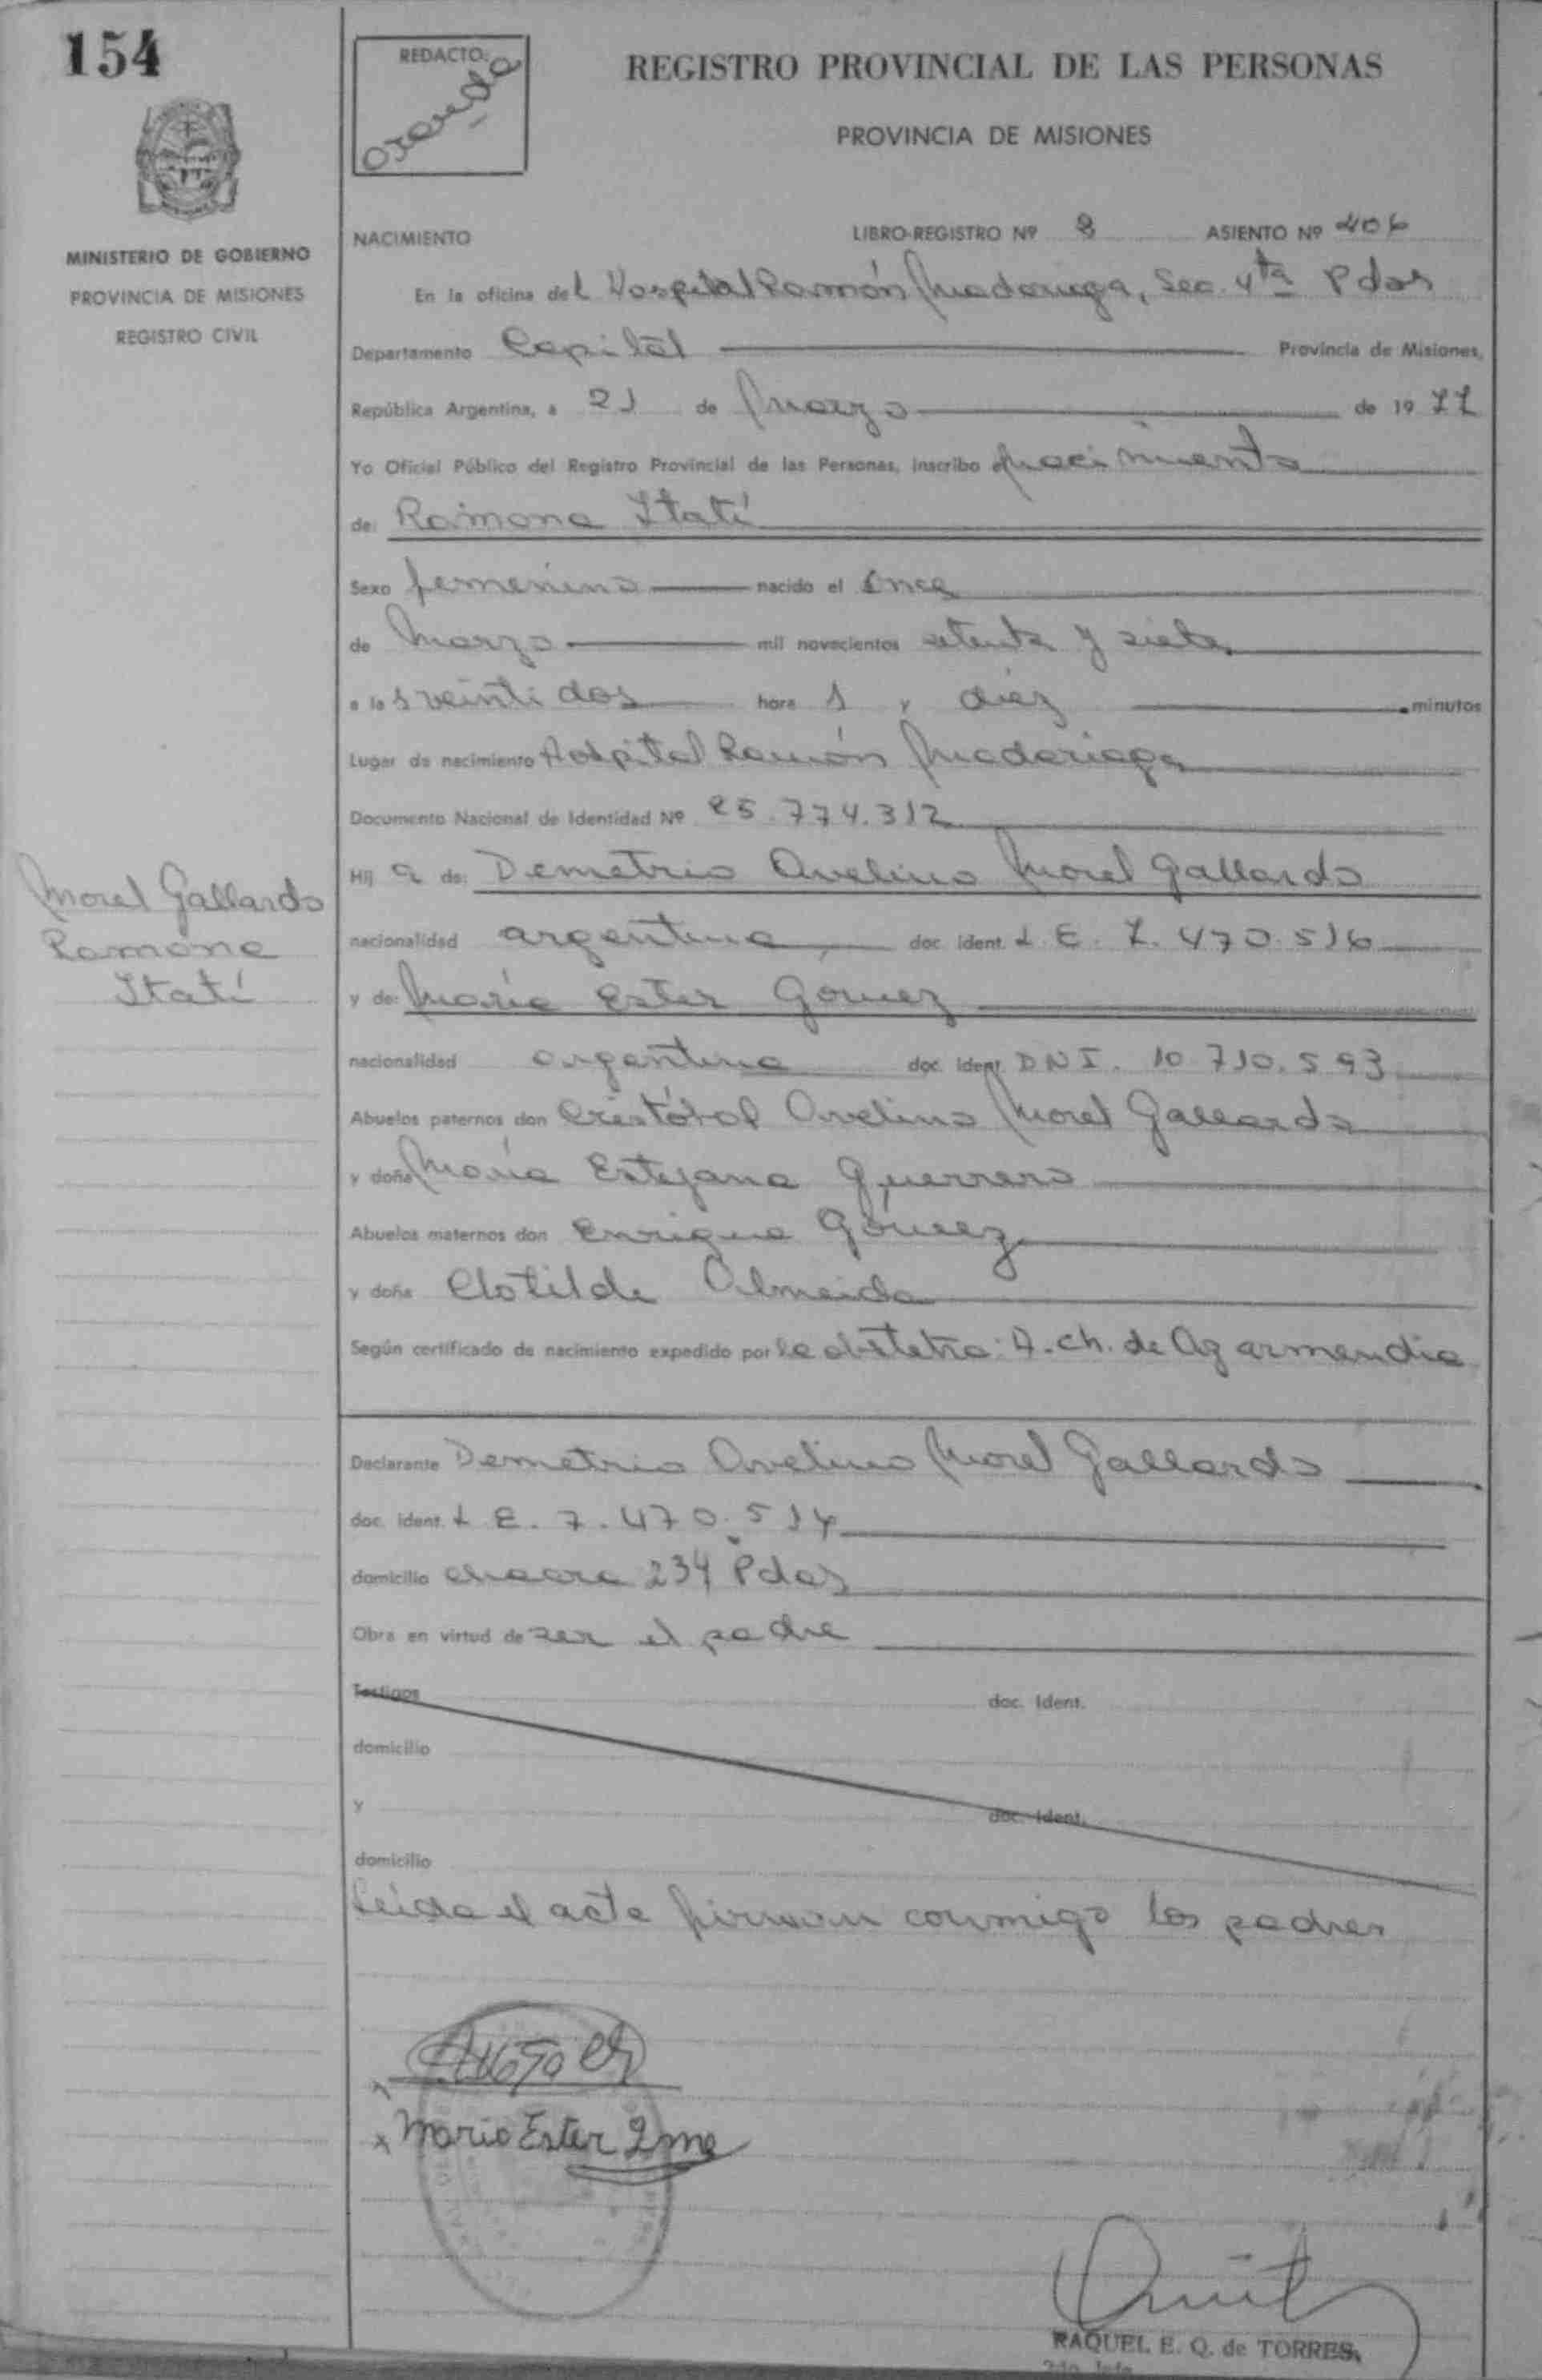 154
REDACTO:
REGISTRO PROVINCIAL DE LAS PERSONAS
PROVINCIA DE MISIONES
MINISTERIO DE GOBIERNO
PROVINCIA DE MISIONES
REGISTRO CIVIL
NACIMIENTO LIBRO-REGISTRO Nº 8 ASIENTO Nº 406
En la oficina del Hospital Ramón Madariaga, Sec. 4ta Pdas
Departamento Capital Provincia de Misiones,
República Argentina, a 21 de Marzo de 1977
Yo Oficial Público del Registro Provincial de las Personas, inscribo nacimiento
de: Ramona Itatí
Sexo femenino nacido el Once
de Marzo mil novecientos setenta y siete
a las veinti dos hora s y diez minutos
Lugar de nacimiento Hospital Ramón Madariaga
Documento Nacional de Identidad Nº 25.774.312
Hij a de: Demetrio Avelino Morel Gallardo
Morel Gallardo
Ramona
Itatí
nacionalidad argentina doc. ident. L.E. 7.470.516
y de: María Ester Gómez
nacionalidad argentina doc. ident. DNI. 10.710.593
Abuelos paternos don Cristóbal Avelino Morel Gallardo
y doña María Estefana Guerrero
Abuelos maternos don Enrique Gómez
y doña Clotilde Almeida
Según certificado de nacimiento expedido por la obstetra: A. Ch. de Azarmendia
Declarante Demetrio Avelino Morel Gallardo
doc. ident. L.E. 7.470.514
domicilio chacra 234 Pdas
Obra en virtud de ser el padre
Testigos doc. Ident.
domicilio
y doc. Ident.
domicilio
Leída el acta firman conmigo los padres
Maria Ester
RAQUEL E. Q. de TORRES